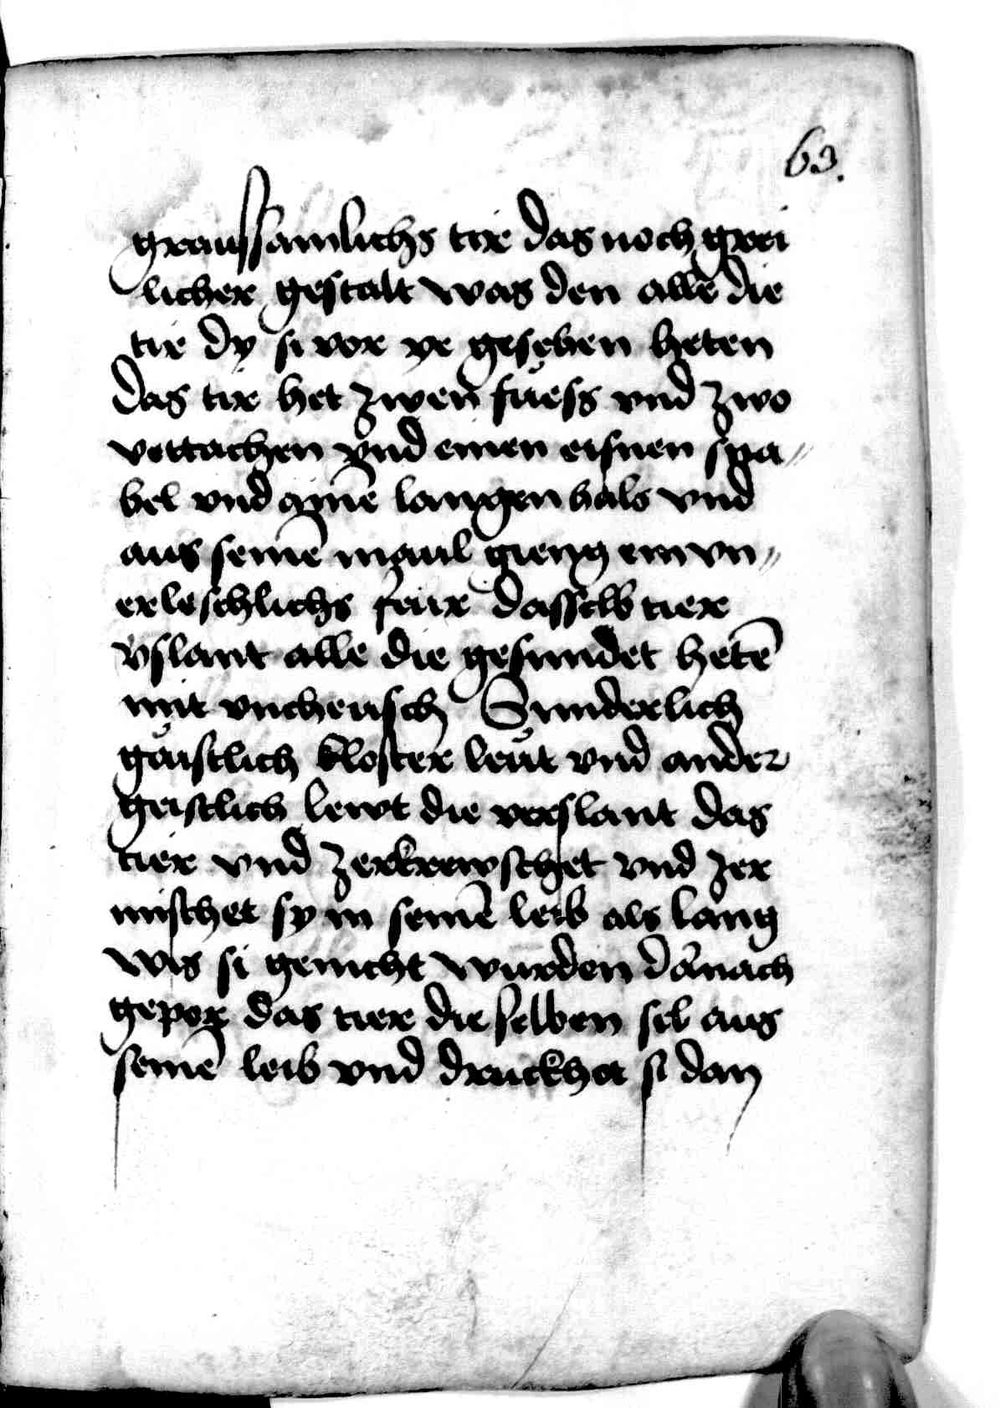 63.
graussamlichs tir das noch grei
licher gestalt was den alle die
tir dy si vor ye gesehen heten
das tir het zwen füess vnd zwo
vettachen vnd einen eisnen sna„
bel vnd ainē langen hals vnd
aus seinē maul gieng ein vn„
erleschlichs feür dasselb tier
v̄slant alle die gesundet hetē
mit vncheüsch Sunderlich
gaistlich kloster leüt vnd ander
geistlich lewt die verslant das
tier vnd zerkrewschet vnd zer
mischet sy in seinē leib als lang
wis si genicht wurden dānach
gepor das tier die selben sel aus
seinē leib vnd druckhet si dan